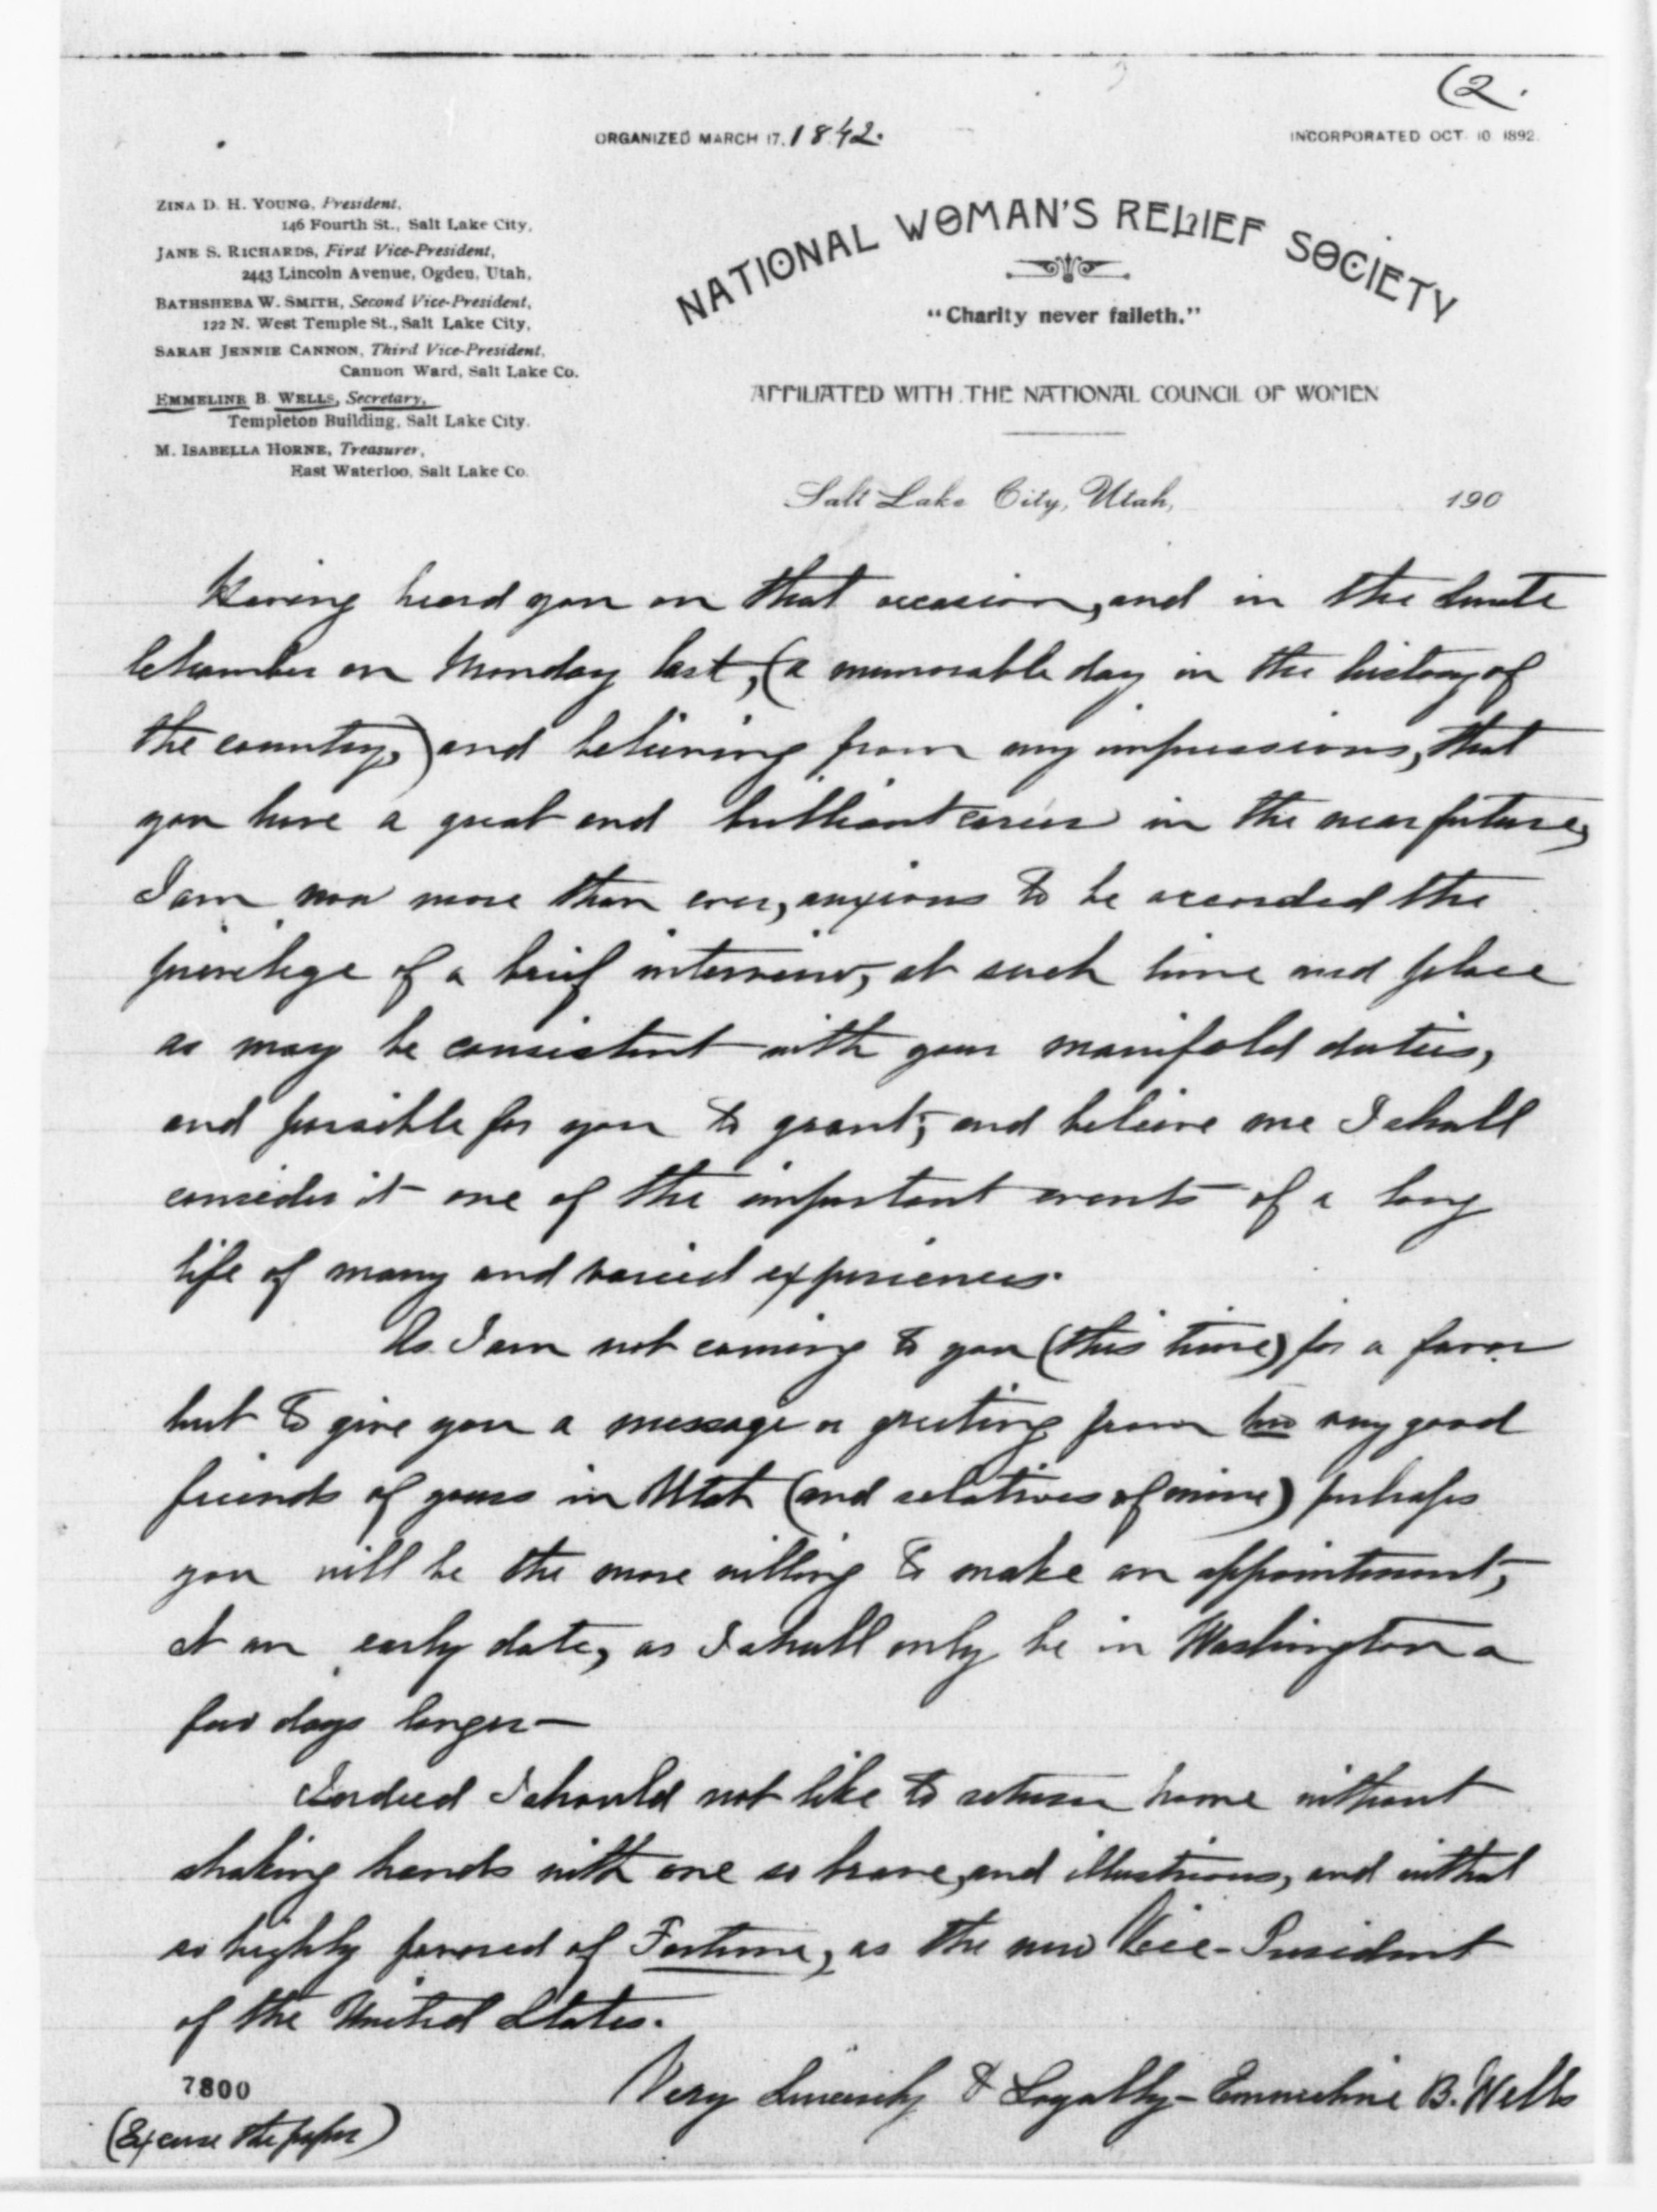 (2.
ORGANIZED MARCH 17, 1842.
INCORPORATED OCT. 10 1892.
ZINA D. H. YOUNG, President,
146 Fourth St., Salt Lake City,
JANE S. RICHARDS, First Vice-President,
2443 Lincoln Avenue, Ogden, Utah,
BATHSHEBA W. SMITH, Second Vice-President,
122 N. West Temple St., Salt Lake City,
SARAH JENNIE CANNON, Third Vice-President,
Cannon Ward, Salt Lake Co.
EMMELINE B. WELLS, Secretary,
Templeton Building, Salt Lake City.
M. ISABELLA HORNE, Treasurer,
East Waterloo, Salt Lake Co.
NATIONAL WOMAN'S RELIEF SOCIETY
"Charity never faileth."
AFFILIATED WITH THE NATIONAL COUNCIL OF WOMEN
Salt Lake City, Utah, 190
Having heard you on that occasion, and in the Senate
Chamber on Monday last, (a memorable day in the history of
the country,) and believing from my impressions, that
you have a great and brilliant career in the near future,
I am now more than ever, anxious to be accorded the
privilege of a brief interview, at such time and place
as may be consistent with your manifold duties,
and possible for you to grant; and believe me I shall
consider it one of the important events of a long
life of many and varied experiences.
As I am not coming to you (this time) for a favor
but to give you a message or greeting from two very good
friends of yours in Utah (and relatives of mine) perhaps
you will be the more willing to make an appointment,
at an early date, as I shall only be in Washington a
few days longer—
Indeed I should not like to return home without
shaking hands with one so brave, and illustrious, and withal
so highly favored of Fortune, as the new Vice-President
of the United States.
Very Sincerely & Loyally— Emmeline B. Wells
7800
(Excuse the paper)